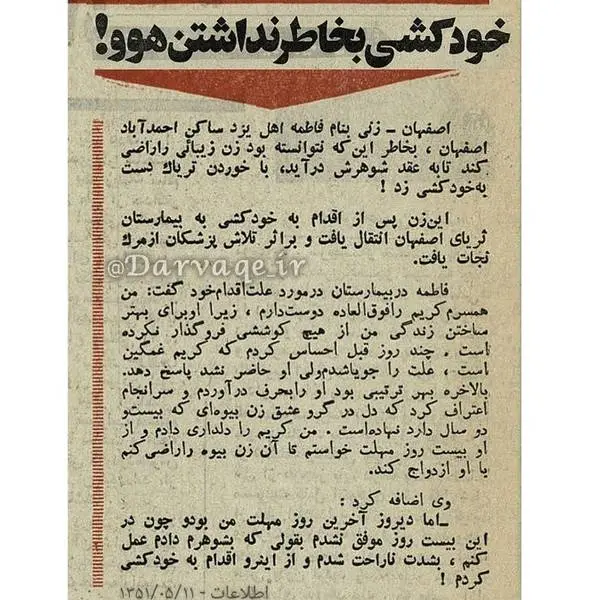 خودکشی بخاطر نداشتن هوو!
اصفهان ـ زنی بنام فاطمه اهل یزد ساکن احمدآباد
اصفهان ، بخاطر این‌که نتوانسته بود زن زیبائی راراضی
کند تابه عقد شوهرش درآید، با خوردن تریاك دست
به‌خودکشی زد !
این‌زن پس از اقدام به خودکشی به بیمارستان
ثریای اصفهان انتقال یافت و براثر تلاش پزشکان ازمرك
نجات یافت.
@Darvaqe_ir
فاطمه دربیمارستان درمورد علت‌اقدام‌خود گفت: من
همسرم‌کریم رافوق‌العاده دوست‌دارم ، زیرا اوبرای بهتر
ساختن زندگی من از هیچ کوششی فروگذار نکرده
است . چند روز قبل احساس کردم که کریم غمگین
است ، علت را جویاشدم‌ولی او حاضر نشد پاسخ دهد.
بالاخره بهر ترتیبی بود او رابحرف درآوردم و سرانجام
اعتراف کرد که دل در گرو عشق زن بیوه‌ای که بیست‌و
دو سال دارد نهاده‌است . من کریم را دلداری دادم و از
او بیست روز مهلت خواستم تا آن زن بیوه راراضی‌کنم
با او ازدواج کند.
وی اضافه کرد :
ـ‌اما دیروز آخرین روز مهلت من بودو چون در
این بیست روز موفق نشدم بقولی که بشوهرم دادم عمل
کنم ، بشدت ناراحت شدم و از اینرو اقدام به خودکشی
کردم !
اطلاعات - ۱۳۵۱/۰۵/۱۱